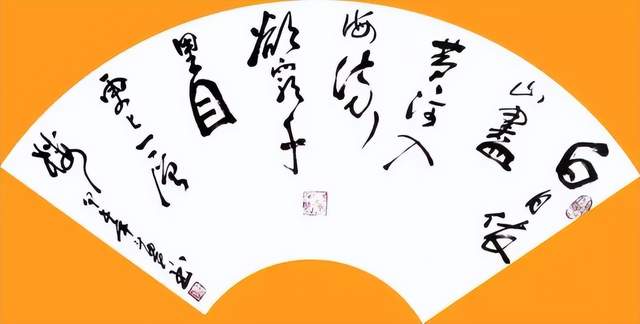 白日依
山盡
黄河入
海流
欲窮千
里目
更上一層
楼